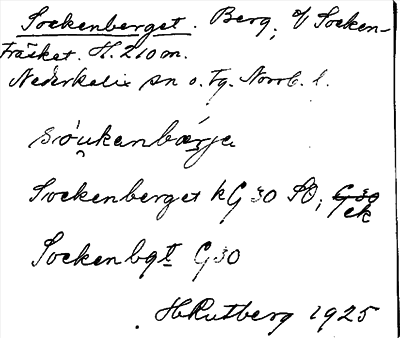 Sockenberget. Berg, v/ Socken-
träsket. H. 210 m.
Nederkalix sn o. tg. Norrb. l.
söukenbærje
Sockenberget kG 30 SO, G 30
ek
Sockenbgt G 30
H Rutberg 1925